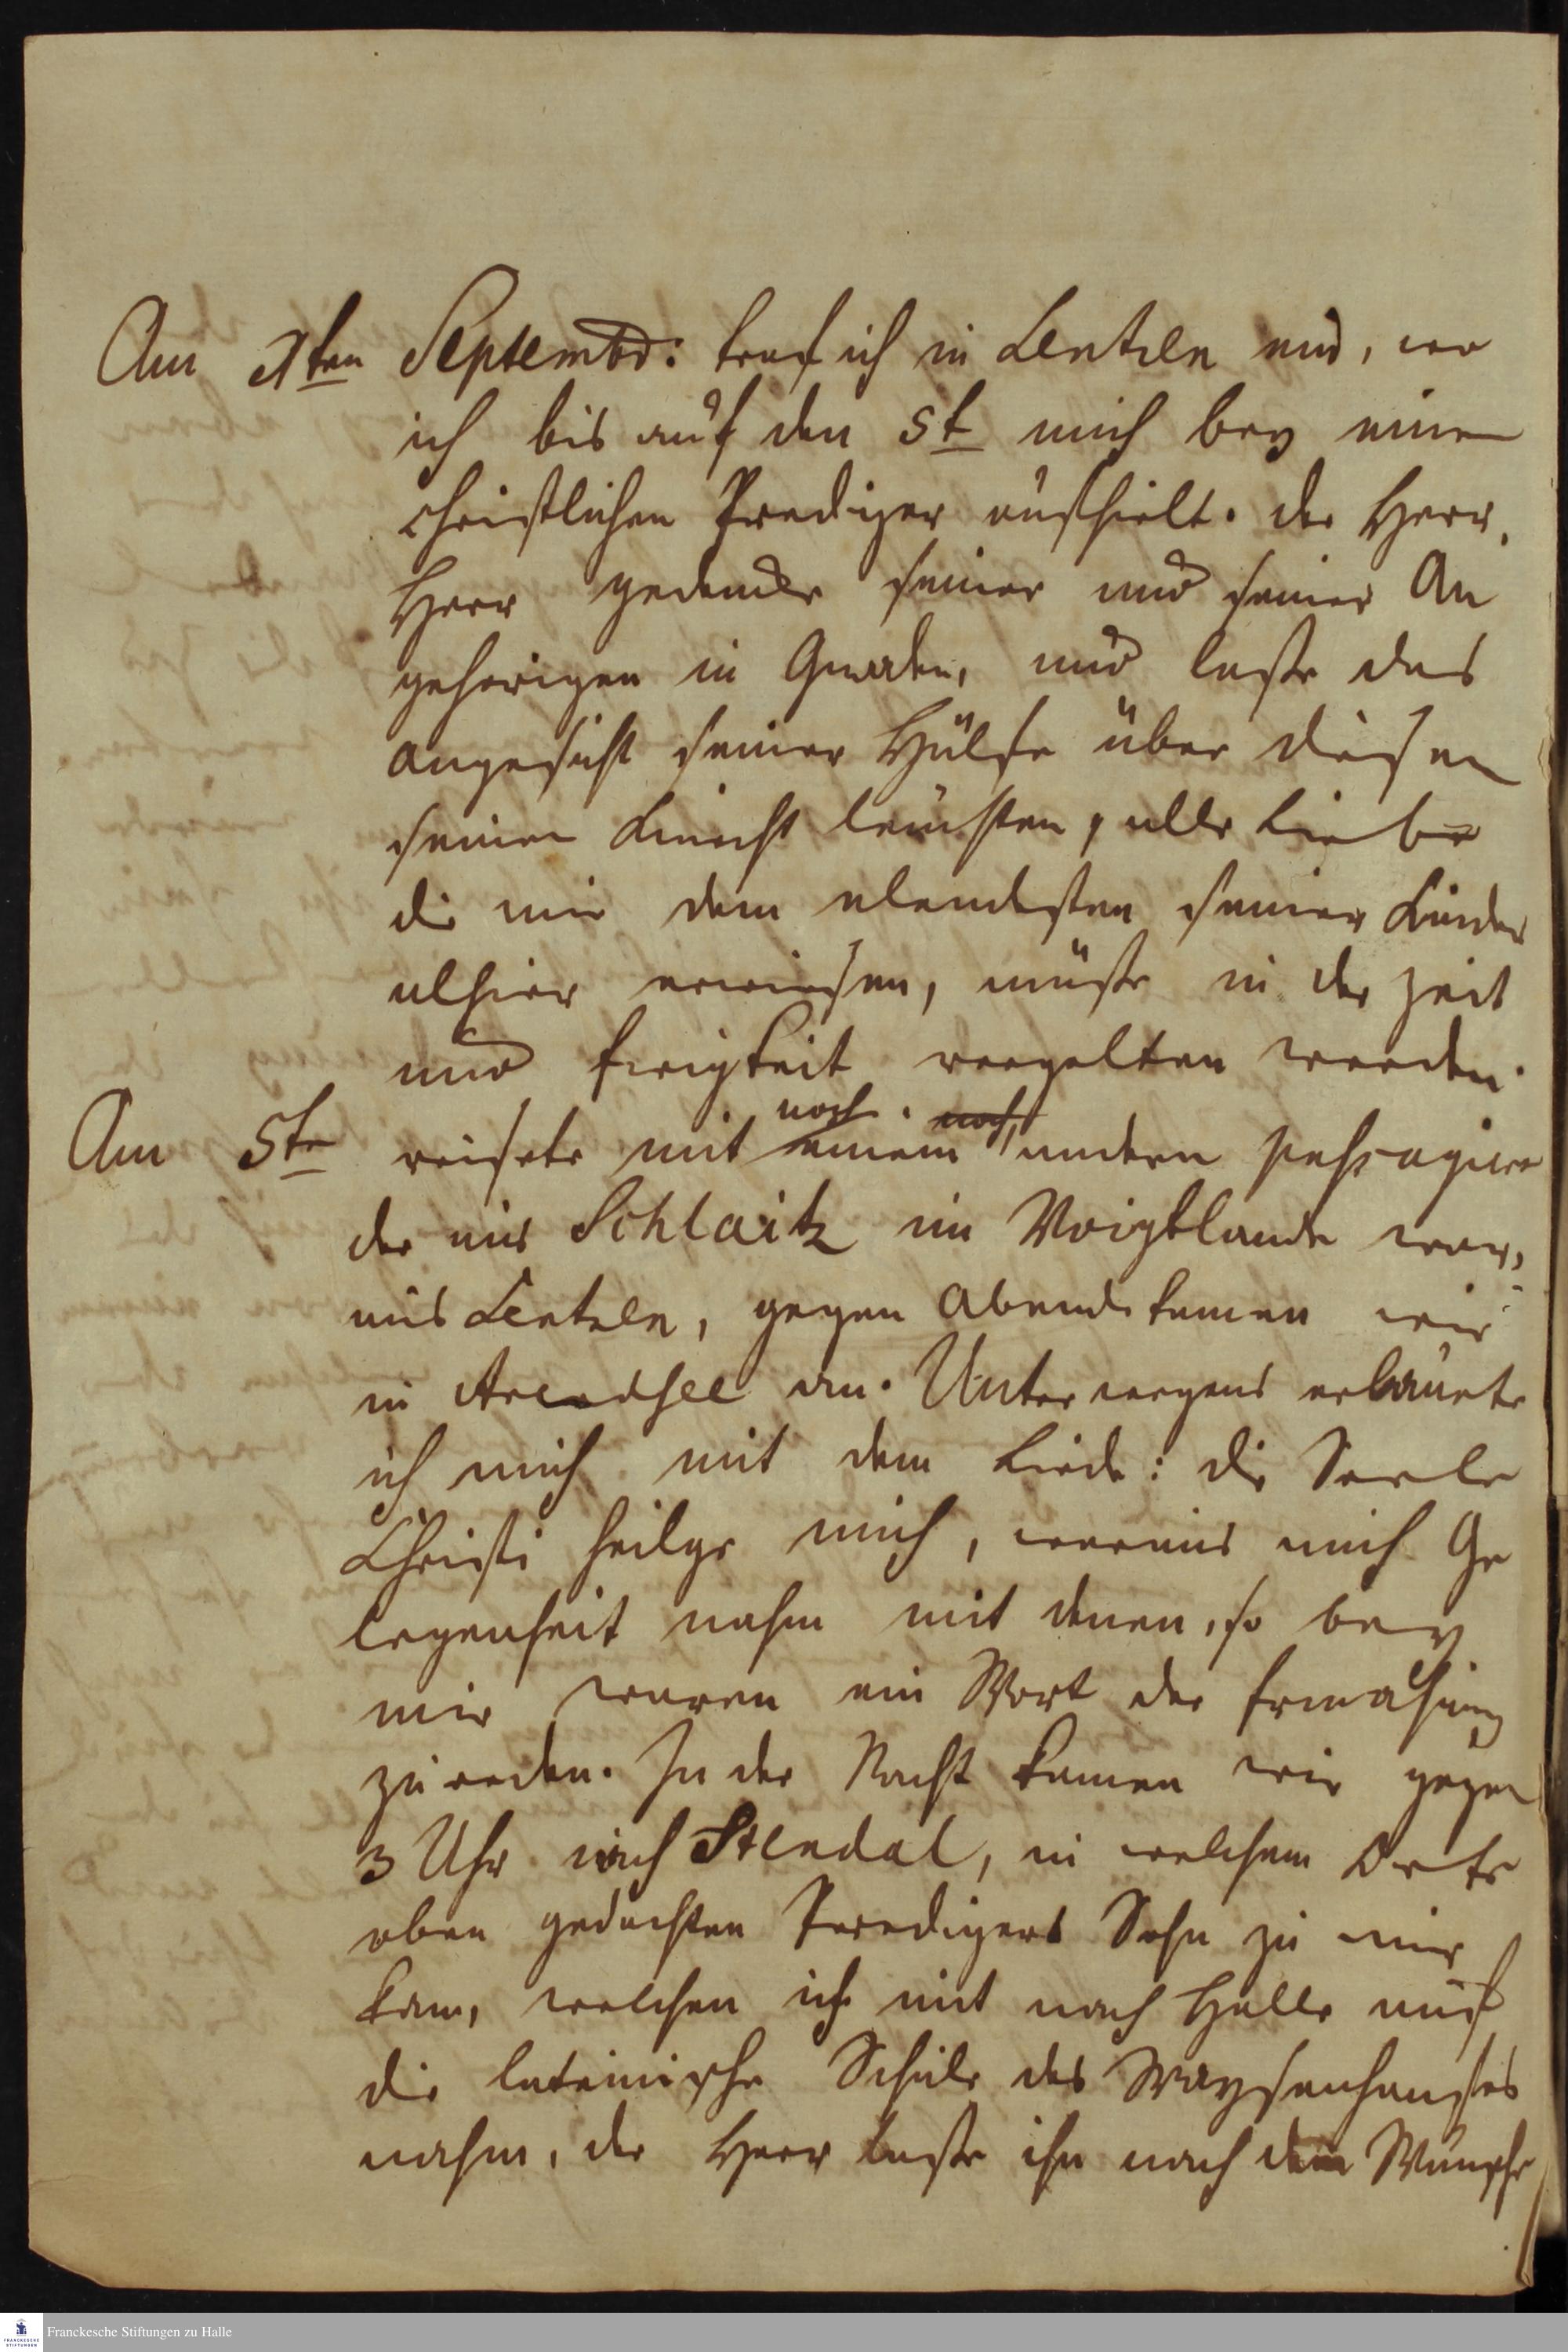 Am 1ten Septembr: traf ich in Lentzen ein, wo
ich bis auf den 5t mich bey einem
christlichen Prediger aufhielt. der Herr,
Herr gedencke seiner und seiner An
gehörigen in Gnaden, und laße das
Angesicht seiner Hülfe über diesen
seinen Knecht leuchten, alle Liebe
die mir dem elendesten seiner Kinder
alhier erwiesen, müße in der Zeit
und Ewigkeit vergelten werden.
Am 5te reisete mit noch einem noch, andern passagier
der aus Schlaitz im Voigtlande war,
aus Lentzen, gegen Abend kamen wir
in Arendsee an. Unterwegens erbauete
ich mich mit dem Liede: die Seele
Christi heilge mich, woraus auch Ge
legenheit nahm mit denen, so bey
mir waren ein Wort der Ermahnung
zu reden. In der Nacht kamen wir gegen
3 Uhr nach Stendal, in welchem Orte
oben gedachten Predigers Sohn zu mir
kam, welchen ich mit nach Halle auf
die lateinische Schule des Waysenhauses
nahm, der Herr laße ihn nach dem Wunsche
Franckesche Stiftungen zu Halle